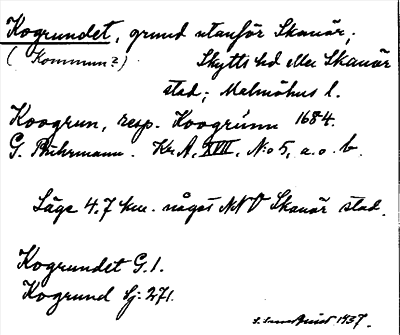 Kogrundet, grund utanför Skanör,
(Kommun?) Skytts hd eller Skanör
stad; Malmöhus l.
Koogrun, resp. Koogrúnn 1684.
G. Buhrmann. Kr. A, XVII, No 5, a. o. b.
Läge 4.7 km. något NNV Skanör stad.
Kogrundet G. 1.
Kogrund Sj. 271.
1937.